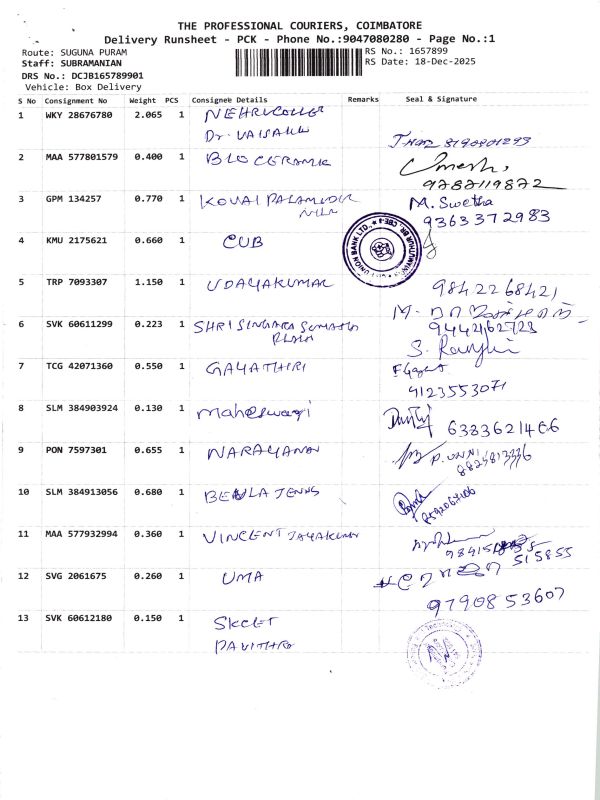 THE PROFESSIONAL COURIERS, COIMBATORE
Delivery Runsheet - PCK - Phone No.:9047080280 - Page No.:1
Route: SUGUNA PURAM RS No.: 1657899
Staff: SUBRAMANIAN RS Date: 18-Dec-2025
DRS No.: DCJB165789901
Vehicle: Box Delivery
S No Consignment No Weight PCS Consignee Details Remarks Seal & Signature
1 WKY 28676780 2.065 1 NEHRU COLLEGE
Dr. VAISAKH
2 MAA 577801579 0.400 1 BIO CERAMIK
9787119872
3 GPM 134257 0.770 1 KOVAI M. Swetha
9363372983
4 KMU 2175621 0.660 1 CUB
UNION BANK LTD.,
5 TRP 7093307 1.150 1 UDAYAKUMAR 9842268421
M.
6 SVK 60611299 0.223 1 SHRI SINGARA
S.
7 TCG 42071360 0.550 1 GAYATHIRI
9123553071
8 SLM 384903924 0.130 1 Maheswari
9 PON 7597301 0.655 1 NARAYANAN P. UNNI
10 SLM 384913056 0.680 1 JENNS
11 MAA 577932994 0.360 1 VINCENT JAYAKUMAR
515855
12 SVG 2061675 0.260 1 UMA
9790853607
13 SVK 60612180 0.150 1 SKCET
PAVITHRA